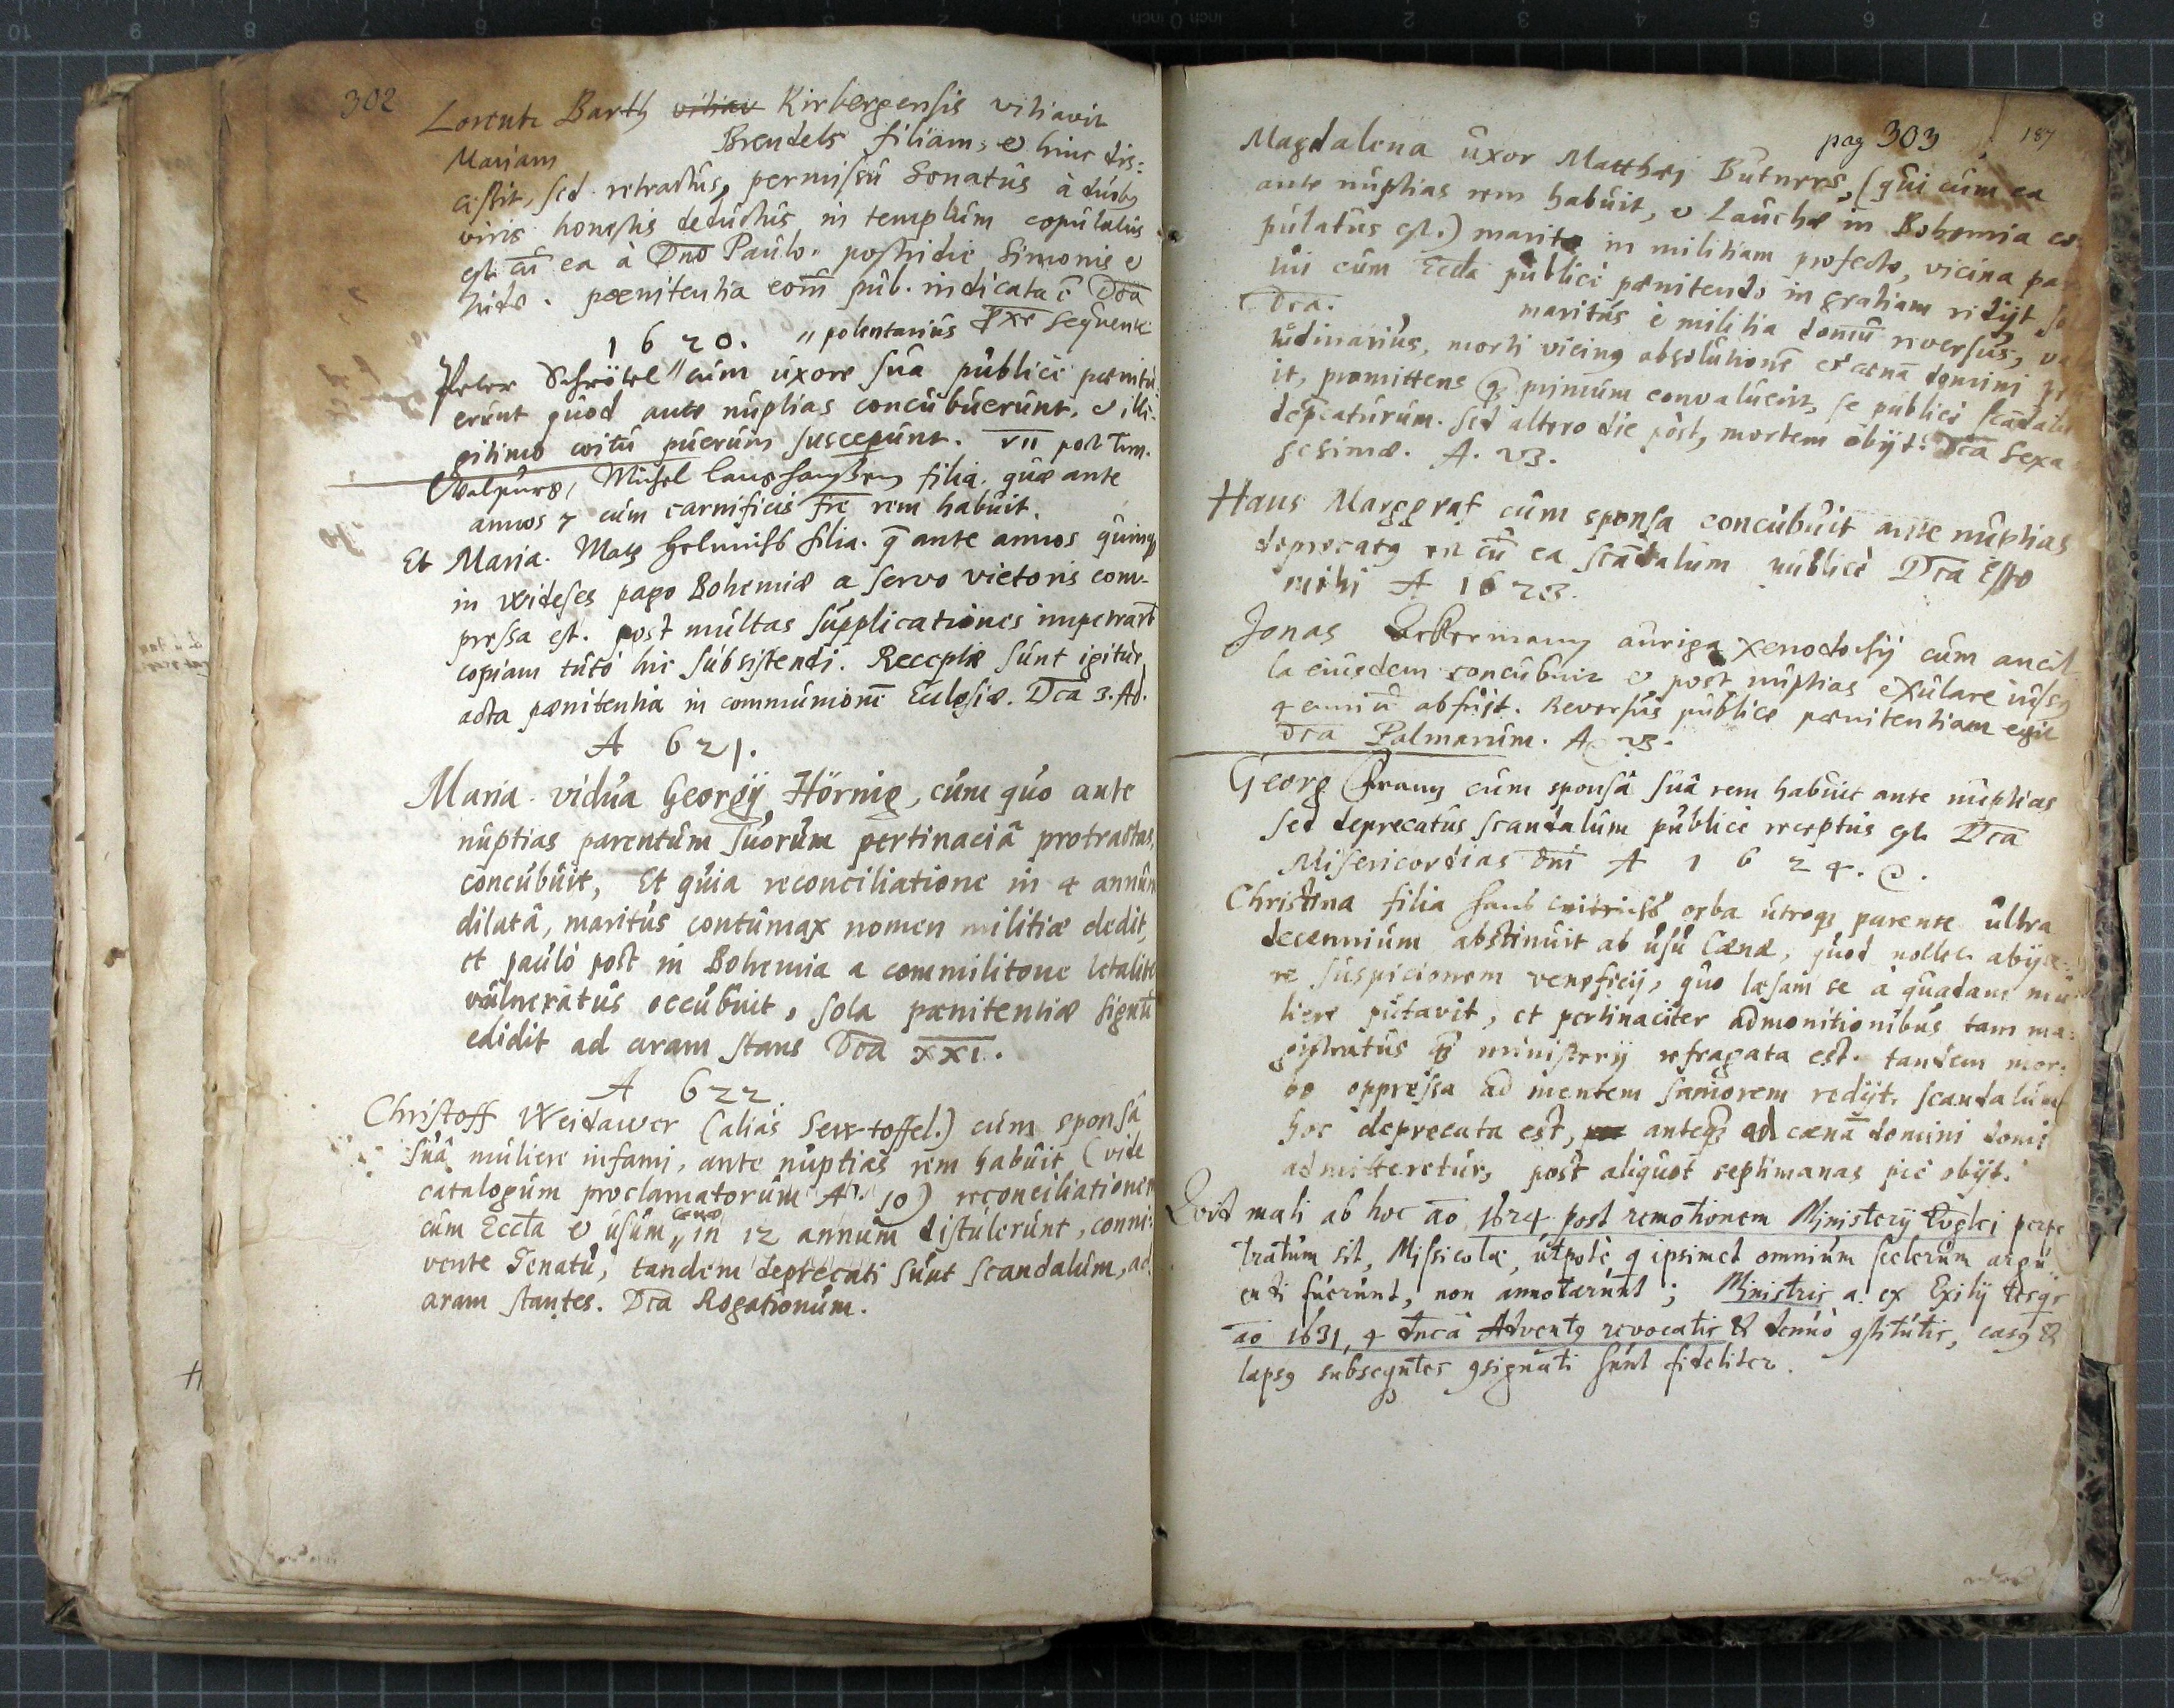 302
Lorentz Barth vitiav Kirbergensis vitiavit
Mariam Brendels filiam, & hinc dis=
cessit, sed retractus, permissu Senatus à duobus
viris honestis deductus in templum copulatus
est cū ea à Dno Paulo. postridie Simonis &
Judæ. pœnitentia eorū pub. indicata ē Dca
sequente
1620. " polentarius
Peter Schrötel " cum uxore sua publicè pœnitu=
erunt quod ante nuptias concubuerunt, & ille=
gitimo coitu puerum susceperunt. VII post Trin.
Walpurg, Michel filia. quæ ante
annos 7 cum carnificis rem habuit.
Et Maria. Matz filia. q̄ ante annos quinq
in pago Bohemiæ a servo victoris com=
pressa est. post multas supplicationes impetrarūt
copiam tutò hic subsistendi. Receptæ sunt igitur
acta pœnitentia in communionē Ecclesiæ. Dca 3. Ad.
A 621.
Maria. vidua Georgij Hörnig, cum quo ante
nuptias parentum suorum pertinaciâ protractas,
concubuit, Et quia reconciliatione in 4 annum
dilatâ, maritus contumax nomen militiæ dedit,
et paulò post in Bohemia a commilitone letalite
vulneratus occubuit, sola pœnitentiæ signū
edidit ad aram stans Dca XXI.
A 622.
Christoff Weidawer (aliàs Sew-toffel.) cum sponsâ
suâ muliere infami, ante nuptias rem habuit (vide
catalogum proclamatorum Aº. 10) reconciliationem
cum Eccła & usum " cœnæ in 12 annum distulerunt, conni=
vente Senatu, tandem deprecati sunt scandalum, ad
aram stantes. Dca Rogationum.
pag 303 187
Magdalena uxor Matthæj Butners, (qui cum ea
ante nuptias rem habuit, & Lauchæ in Bohemia co=
pulatus est.) marito in militiam profecto, vicina par
tui cum Eccła publicè pœnitendo in gratiam redijt
Dca. maritus è militia domū reversus,
morti vicinq absolutionē et cœnā domini
it, promittens primum convalucrit, se publicè scādalū
dep̄caturum. Sed altero die pòst, mortem obijt. Dca Sexa
gesimæ. A. 23.
Hans Marggraf cum sponsa concubuit ante nuptias
deprecatq est cū ea scādalum publicè Dca Esto
mihi A 1623.
Jonas Ackermann auriga xenodochij cum ancil=
la eiusdem concubuit & post nuptias exulare iussq
abfuit. Reversus publicè pœnitentiam egit
Dca Palmarum. A 23.
Georg Frantz cum sponsâ suâ rem habuit ante nuptias
sed deprecatus scandalum publicè receptus est Dca
Misericordias dnī A 1624.
Christina filia Hans orba utroq parente ultra
decennium abstinuit ab usu Cœnæ, quod nollet abijce=
re suspicionem veneficij, quo læsam se à quadam mu=
liere putavit, et pertinaciter admonitionibus tam ma=
gistratus ꝙ ministerij refragata est. tandem mor=
bo oppressa ad mentem saniorem redijt, scandalum
hoc deprecata est, anteꝙ ad cœnā domini domi
admitteretur, post aliquot septimanas piè obijt.
Quid mali ab hoc ao 1624 post remotionem Ministerij Evglci perpe
tratum sit, Missicolæ, utpotè q ipsimet omnium scelerum
fuerunt, non annotarunt; Ministris a. ex Exilij
ao 1631, 4 dncâ Adventq revocatis & denuò ꝯstitutis, casq &
lapsq subseqntes ꝯsignati sunt fideliter.